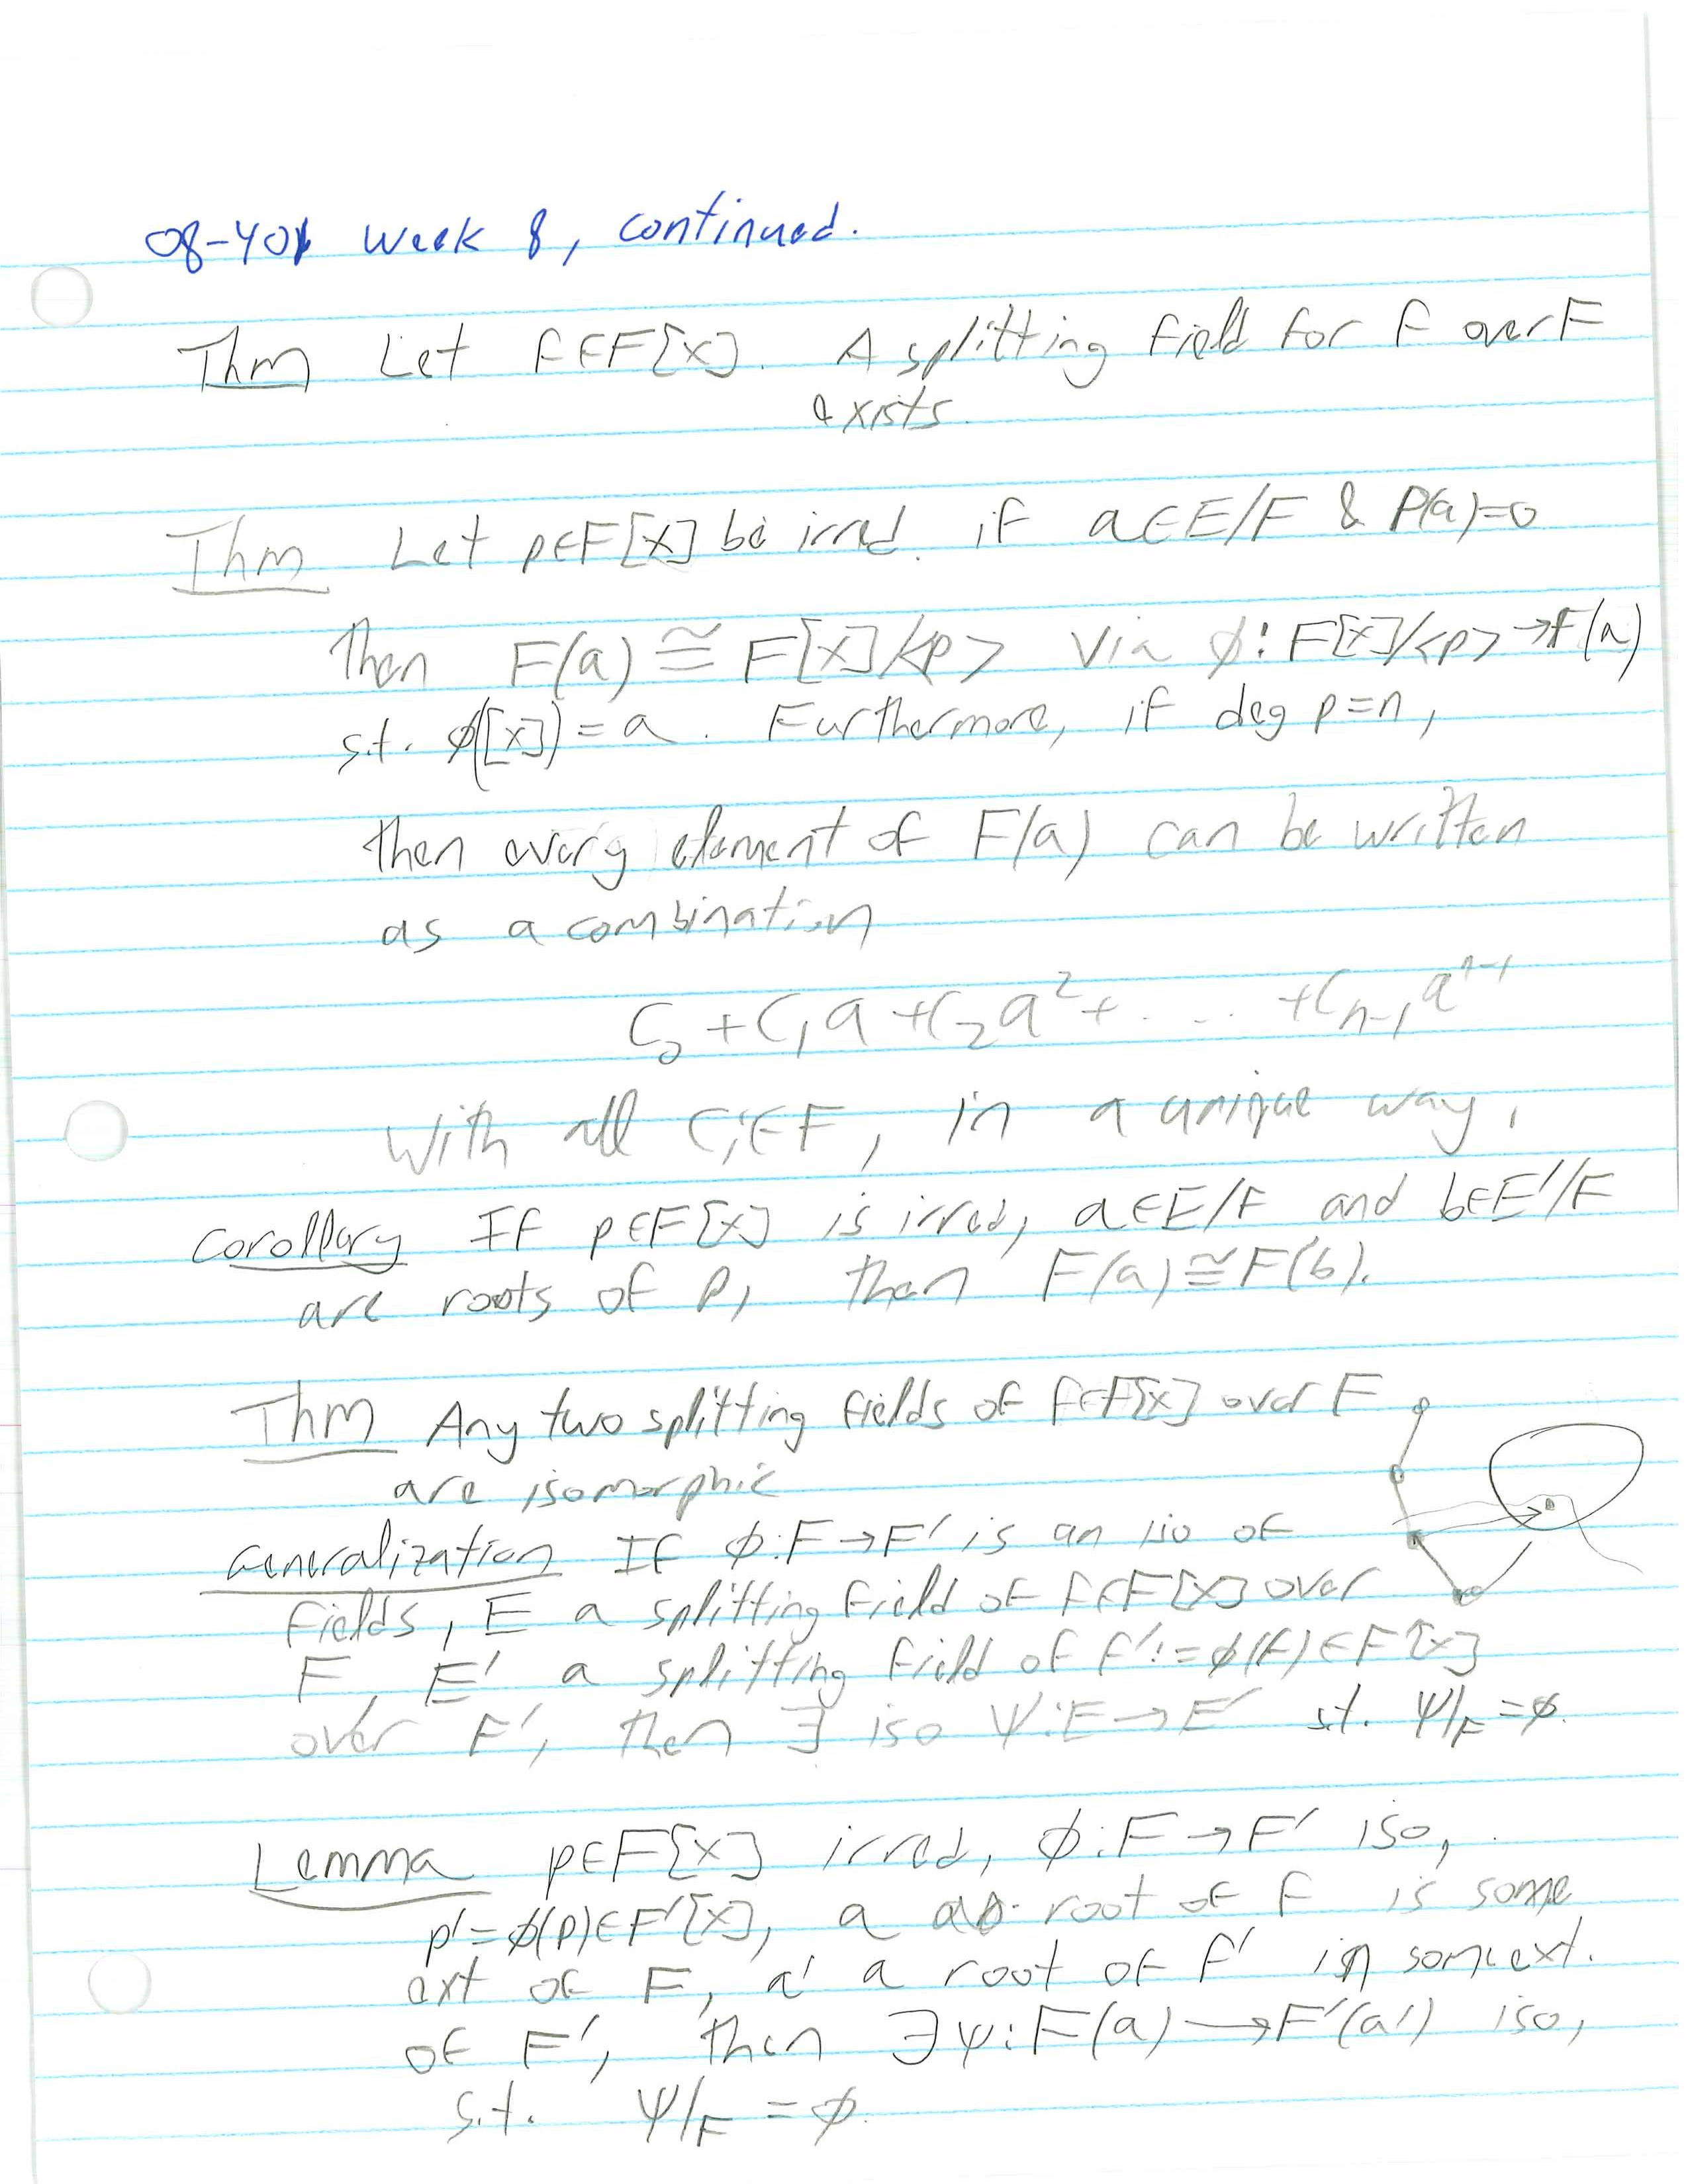 08-401 Week 8, continued.
Thm Let f∈F[x]. A splitting field for f over F
exists
Thm Let p∈F[x] be irred. if a∈E/F & P(a)=0
then F(a)≅F[x]/<p> via ϕ:F[x]/<p>→F(a)
s.t. ϕ([x])=a. Furthermore, if deg p=n,
then every element of F(a) can be written
as a combination
c₀+c₁a+c₂a²+.... +cₙ₋₁aⁿ⁻¹
with all cᵢ∈F, in a unique way.
Corollary If p∈F[x] is irred, a∈E/F and b∈E'/F
are roots of p, then F(a)≅F(b).
Thm Any two splitting fields of f∈F[x] over F
are isomorphic
Generalization If ϕ:F→F' is an iso of
fields, E a splitting field of f∈F[x] over
F, E' a splitting field of f':=ϕ(f)∈F'[x]
over F', then ∃ iso Ψ:E→E' st. Ψ|_F=ϕ.
Lemma p∈F[x] irred, ϕ:F→F' iso,
p'=ϕ(p)∈F'[x], a root of f is some
ext of F, a' a root of f' in some ext.
of F', then ∃ψ:F(a)→F'(a') iso,
s.t. Ψ|_F=ϕ.